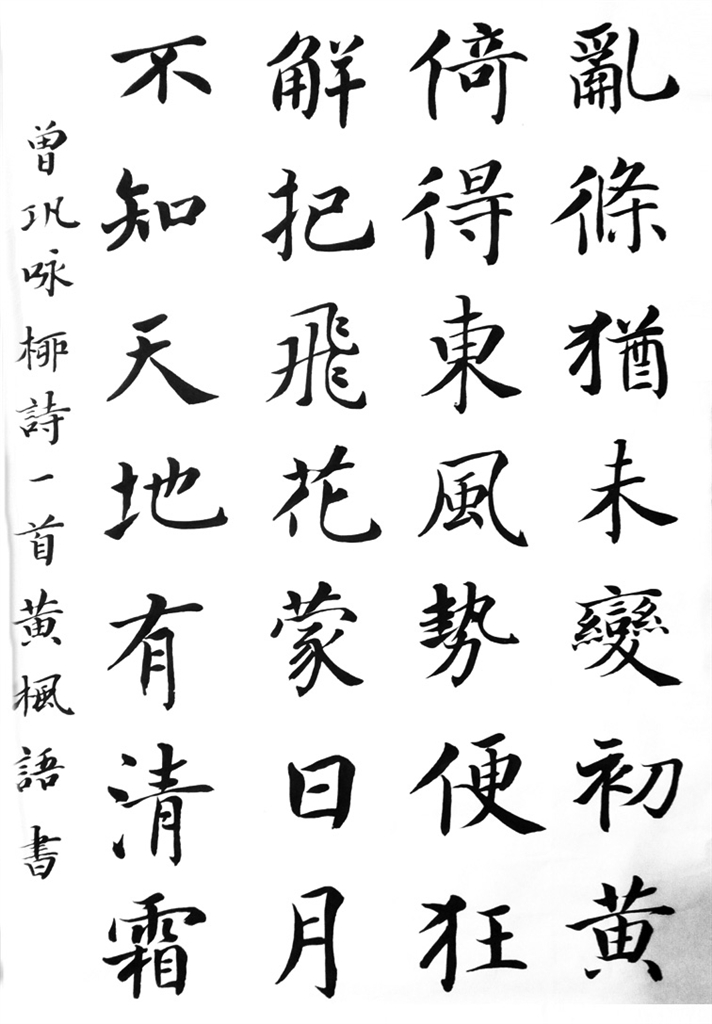 亂條猶未變初黄
倚得東風勢便狂
解把飛花蒙日月
不知天地有清霜
曾巩咏桺詩一首黄楓語書